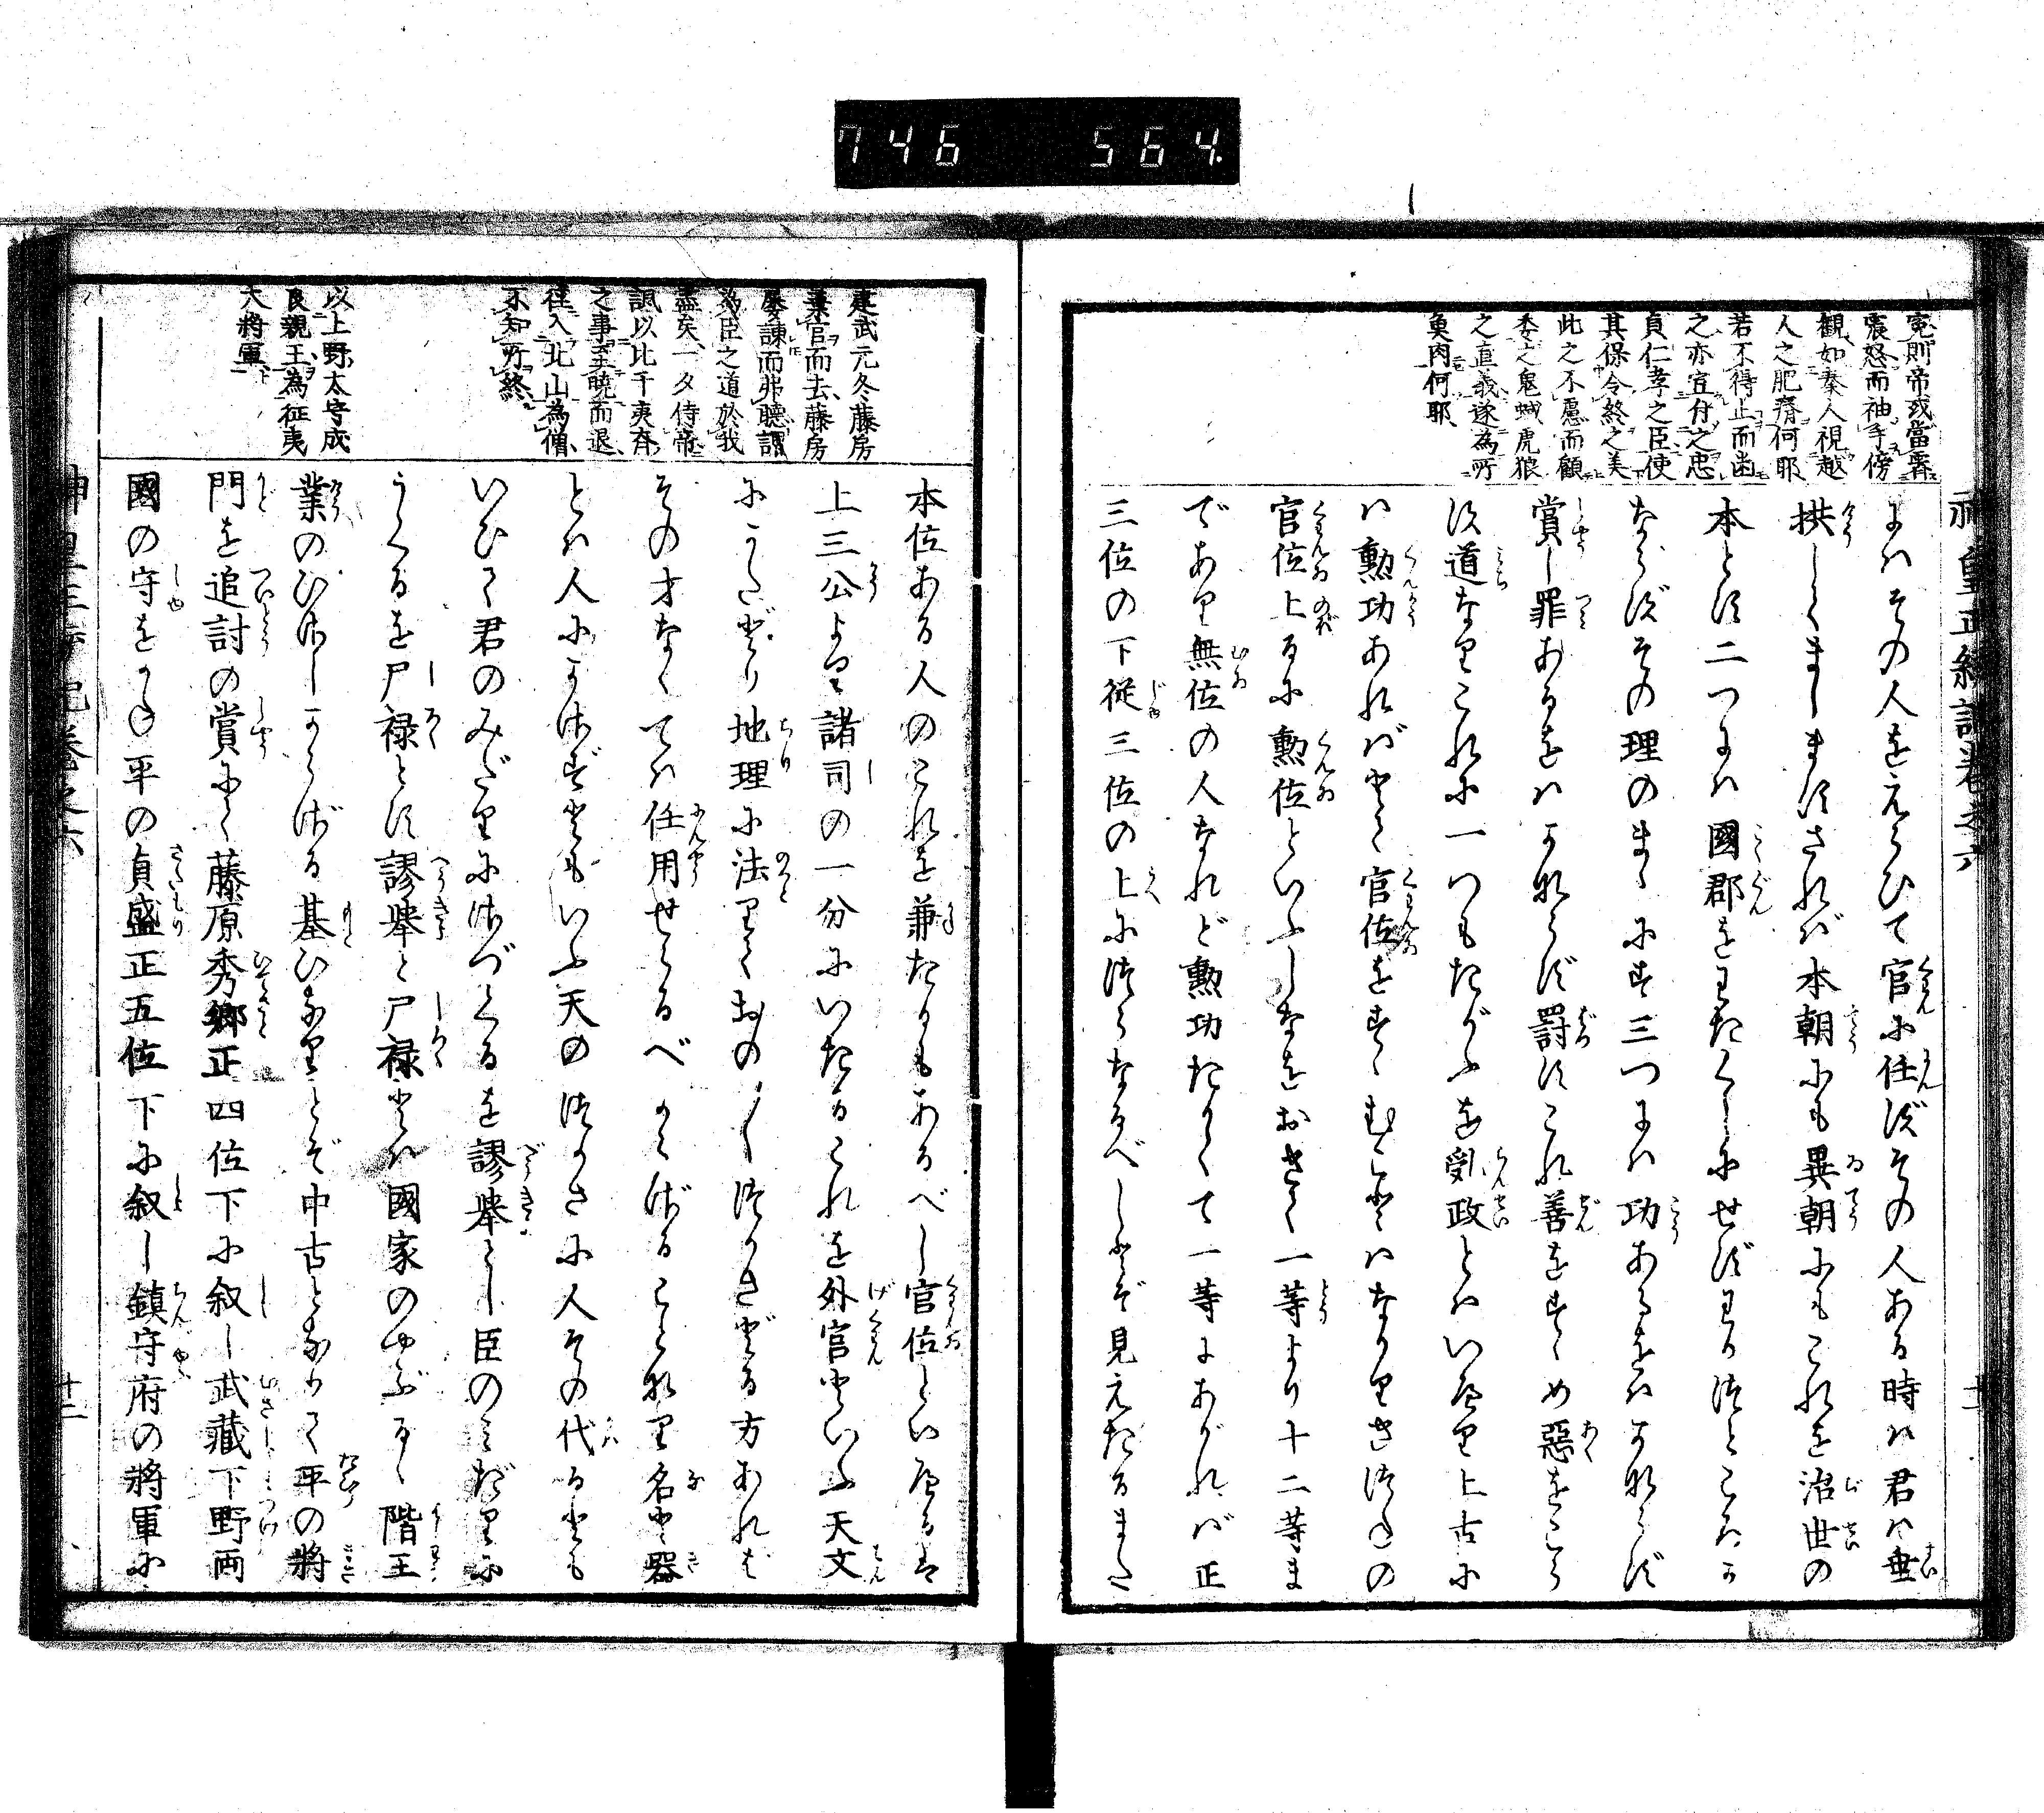 746 564.
神皇正統記巻之六
冤則帝或當霽
震怒而袖手傍
観如秦人視越
人之肥瘠何耶
若不得止而幽
之亦宜付之忠
貞仁孝之臣使
其保令終之美
此之不慮而顧
委之鬼蜮虎狼
之直義遂為所
魚肉何耶
よハその人をえらひて官に任ずその人ある時ハ君ハ垂
拱しましますされバ本朝にも異朝にもこれを治世の
本とす二つにハ國郡をわたくしにせずわかつところか
ならずその理のまゝにす三つにハ功あるをハかならず
賞し罪あるをハかならず罰すこれ善をすゝめ惡をこら
す道なりこれに一つもたがふを乱政とハいへり上古に
ハ勲功あれバとて官位をすゝむ事ハなかりきつねの
官位上るに勲位といふしなをおきて一等より十二等ま
であり無位の人なれど勲功たかくて一等にあがれバ正
三位の下從三位の上につらなるべしとぞ見えたるまた
建武元冬藤房
棄官而去藤房
屡諫而弗聴謂
為臣之道於我
盡矣一夕侍帝
諷以比干夷齊
之事至暁而退
徑入北山為僧
不知所終
以上野太守成
良親王為征夷
大將軍
本位ある人のこれを兼たるもあるべし官位といへるは
上三公より諸司の一分にいたるこれを外官といふ天文
にかたどり地理に法りておの／＼つかさどる方あれば
その才なくてハ任用せらるべからざることなり名と器
とハ人にかさずともいふ天のつかさに人その代るとも
いひて君のみだりにさづくるを謬舉とし臣のみだりに
うくるを尸禄とす謬舉と尸禄とハ國家のやぶるゝ階王
業のひさしからざる基ひなりとぞ中古となりて平の將
門を追討の賞にて藤原秀郷正四位下に叙し武藏下野両
國の守をかね平の貞盛正五位下に叙し鎮守府の將軍に
神皇正統記巻之六
十二